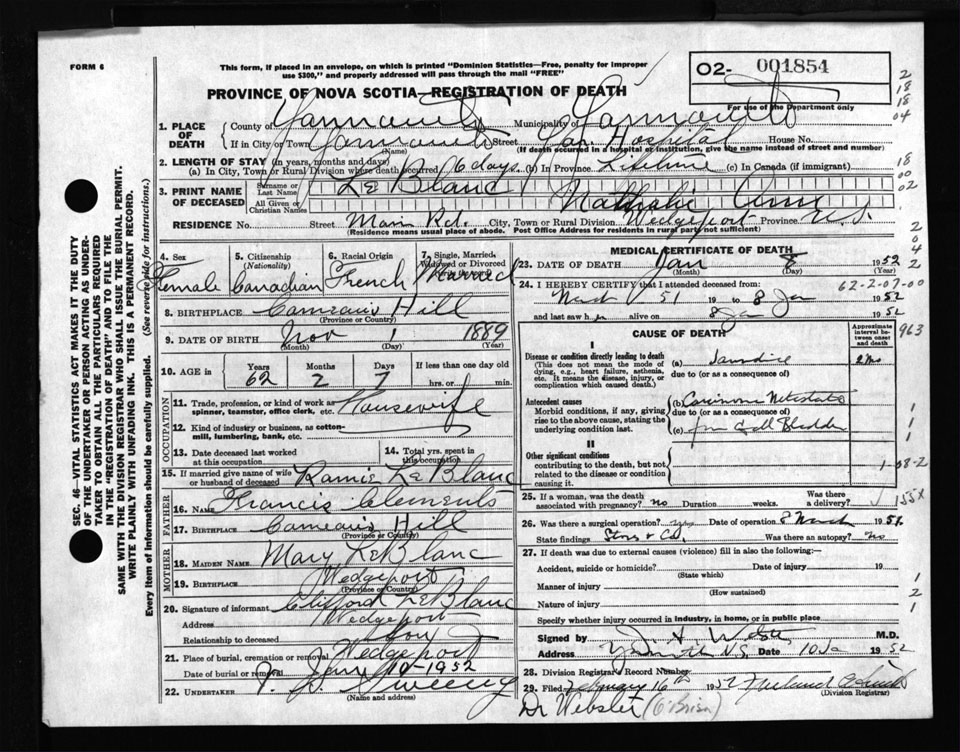 FORM 6
This form, if placed in an envelope, on which is printed "Dominion Statistics—Free, penalty for improper
use $300," and properly addressed will pass through the mail "FREE"
O2- 001854
For use of the Department only
2
18
18
04
PROVINCE OF NOVA SCOTIA—REGISTRATION OF DEATH
1. PLACE OF DEATH
County of Yarmouth Municipality of Yarmouth
If in City or Town Yarmouth Street Yar. Hospital House No.
(Name) (If death occurred in a hospital or institution, give the name instead of street and number)
2. LENGTH OF STAY (in years, months and days)
(a) In City, Town or Rural Division where death occurred 6 days (b) In Province Lifetime (c) In Canada (if immigrant)
18
00
02
3. PRINT NAME OF DECEASED
Surname or Last Name LE Blanc
All Given or Christian Names Nathalie Ann
RESIDENCE No. Street Main Rd. City, Town or Rural Division Wedgeport Province N.S.
(Residence means usual place of abode. Post Office Address for residents in rural parts not sufficient)
SEC. 46—VITAL STATISTICS ACT MAKES IT THE DUTY
OF THE UNDERTAKER OR PERSON ACTING AS UNDER-
TAKER TO OBTAIN ALL THE PARTICULARS REQUIRED
IN THE "REGISTRATION OF DEATH" AND TO FILE THE
SAME WITH THE DIVISION REGISTRAR WHO SHALL ISSUE THE BURIAL PERMIT.
WRITE PLAINLY WITH UNFADING INK. THIS IS A PERMANENT RECORD.
Every item of information should be carefully supplied. (See reverse side for instructions.)
4. Sex Female
5. Citizenship (Nationality) Canadian
6. Racial Origin French
7. Single, Married, Widowed or Divorced Married
8. BIRTHPLACE Comeau's Hill
(Province or Country)
9. DATE OF BIRTH Nov 1 1889
(Month) (Day) (Year)
10. AGE in Years 62 Months 2 Days 7 If less than one day old
hrs. or min.
OCCUPATION
11. Trade, profession, or kind of work as spinner, teamster, office clerk, etc. Housewife
12. Kind of industry or business, as cotton-mill, lumbering, bank, etc.
13. Date deceased last worked at this occupation
14. Total yrs. spent in this occupation
15. If married give name of wife or husband of deceased Remie LE Blanc
FATHER
16. NAME Francis Clements
17. BIRTHPLACE Comeau's Hill
(Province or Country)
MOTHER
18. MAIDEN NAME Mary LEBlanc
19. BIRTHPLACE Wedgeport
(Province or Country)
20. Signature of informant Clifford LE Blanc
Address Wedgeport
Relationship to deceased Son
21. Place of burial, cremation or removal Wedgeport
Date of burial or removal Jan. 10-1952
22. UNDERTAKER Sweeny
(Name and address)
MEDICAL CERTIFICATE OF DEATH
23. DATE OF DEATH Jan 8 1952
(Month) (Day) (Year)
2
0
4
2
24. I HEREBY CERTIFY that I attended deceased from: 62-2-07-00
March 51 19 to 8 Jan 1952
and last saw her alive on 8 Jan 1952
CAUSE OF DEATH
Approximate interval between onset and death
963
I
Disease or condition directly leading to death
(This does not mean the mode of dying, e.g., heart failure, asthenia, etc. It means the disease, injury, or complication which caused death.)
(a) Jaundice 2 mo
due to (or as a consequence of)
Antecedent causes
Morbid conditions, if any, giving rise to the above cause, stating the underlying condition last.
(b) Carcinoma Metastatic
due to (or as a consequence of)
(c) from Gall Bladder
1
1
1
II
Other significant conditions
contributing to the death, but not related to the disease or condition causing it.
1 08-2
25. If a woman, was the death associated with pregnancy? No Duration weeks. Was there a delivery?
155X
26. Was there surgical operation? yes Date of operation 2 March 1951
State findings Was there an autopsy? No
27. If death was due to external causes (violence) fill in also the following:—
Accident, suicide or homicide? Date of injury 19
(State which)
Manner of injury
(How sustained)
Nature of injury
1
2
1
Specify whether injury occurred in industry, in home, or in public place
Signed by Webster M.D.
Address Yarmouth N.S. Date 10 Ja 1952
28. Division Registrar's Record Number
29. Filed February 16th 1952
(Division Registrar)
Dr Webster (O'Brien)